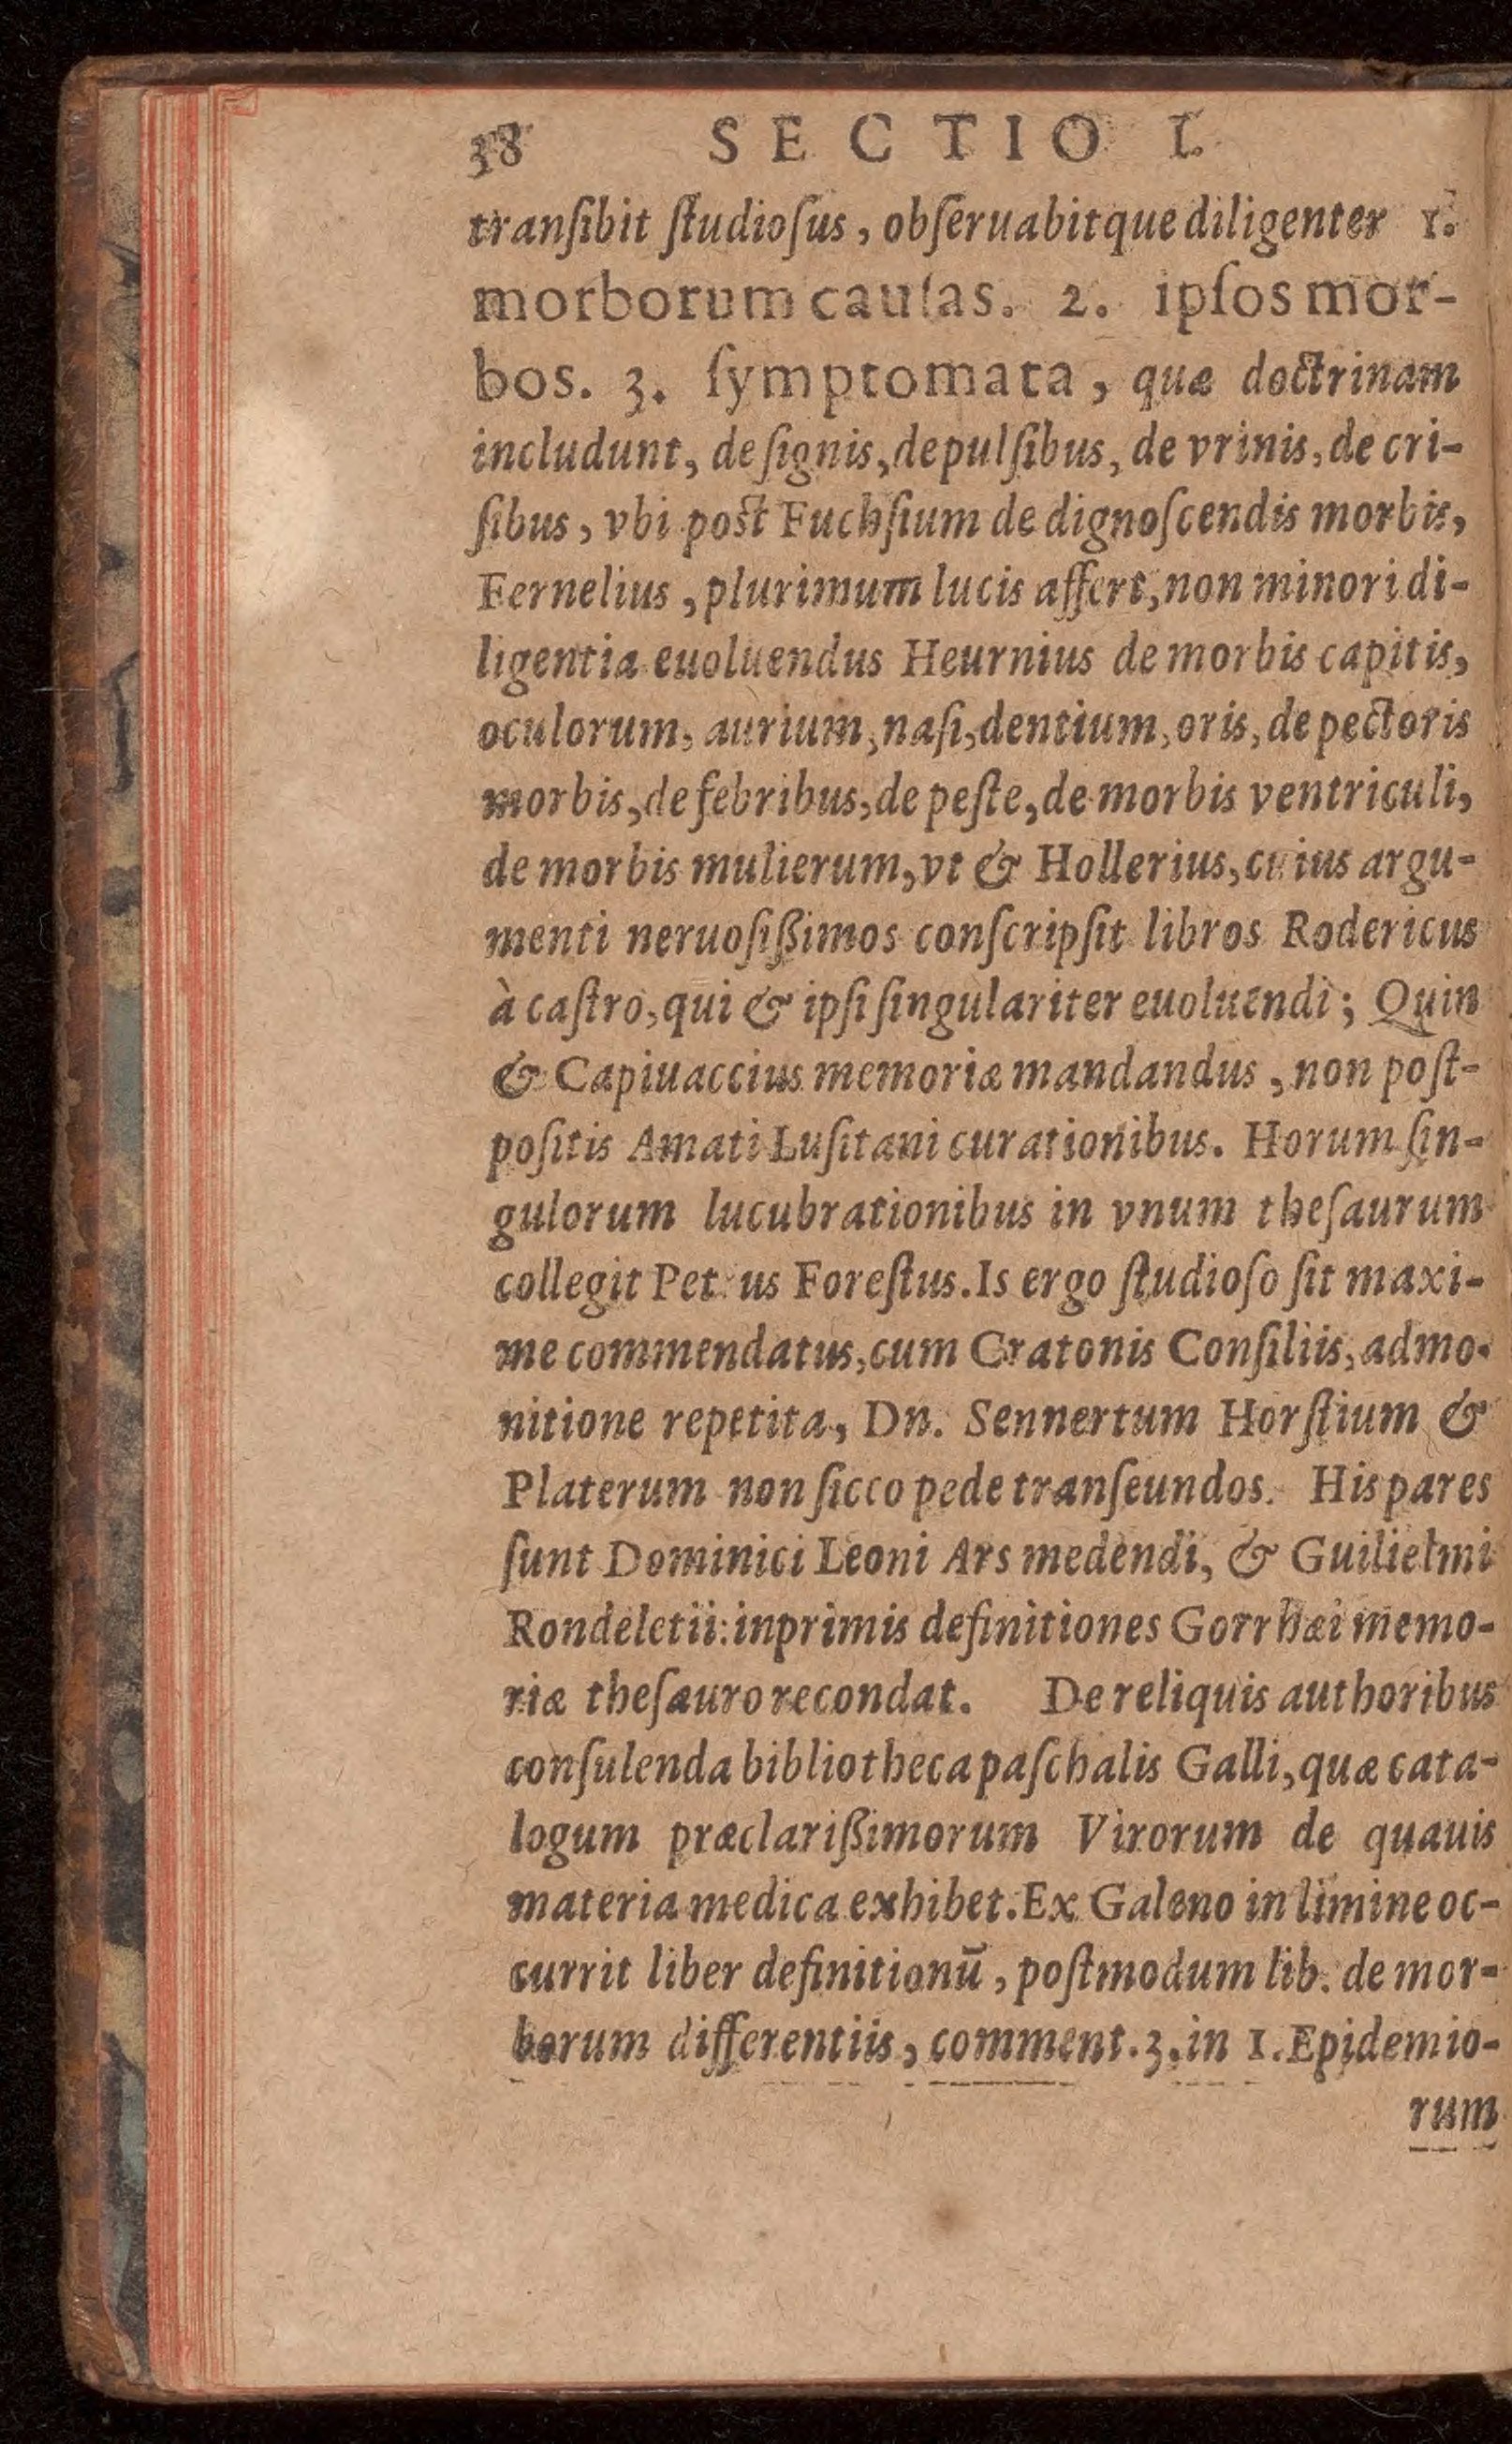 38 SECTIO I.
tranſibit ſtudioſus, obſeruabitque diligenter 1.
morborum cauſas. 2. ipſos mor-
bos. 3. ſymptomata, quæ doctrinam
includunt, de ſignis, de pulſibus, de vrinis, de cri-
ſibus, vbi poſt Fuchſium de dignoſcendis morbis,
Fernelius, plurimum lucis affert, non minori di-
ligentia euoluendus Heurnius de morbis capitis,
oculorum, aurium, naſi, dentium, oris, de pectoris
morbis, de febribus, de peſte, de morbis ventriculi,
de morbis mulierum, vt & Hollerius, cuius argu-
menti neruoſißimos conſcripſit libros Rodericus
à caſtro, qui & ipſi ſingulariter euoluendi; Quin
& Capiuaccius memoriæ mandandus, non poſt-
poſitis Amati Luſitani curationibus. Horum ſin-
gulorum lucubrationibus in vnum theſaurum
collegit Petrus Foreſtus. Is ergo ſtudioſo ſit maxi-
me commendatus, cum Cratonis Conſiliis, admo-
nitione repetita, Dn. Sennertum Horſtium &
Platerum non ſicco pede tranſeundos. His pares
ſunt Dominici Leoni Ars medendi, & Guilielmi
Rondeletii: inprimis definitiones Gorrhæi memo-
riæ theſauro recondat. De reliquis authoribus
conſulenda bibliotheca paſchalis Galli, quæ cata-
logum præclarißimorum Virorum de quauis
materia medica exhibet. Ex Galeno in limine oc-
currit liber definitionū, poſtmodum lib. de mor-
borum differentiis, comment. 3. in 1. Epidemio-
rum